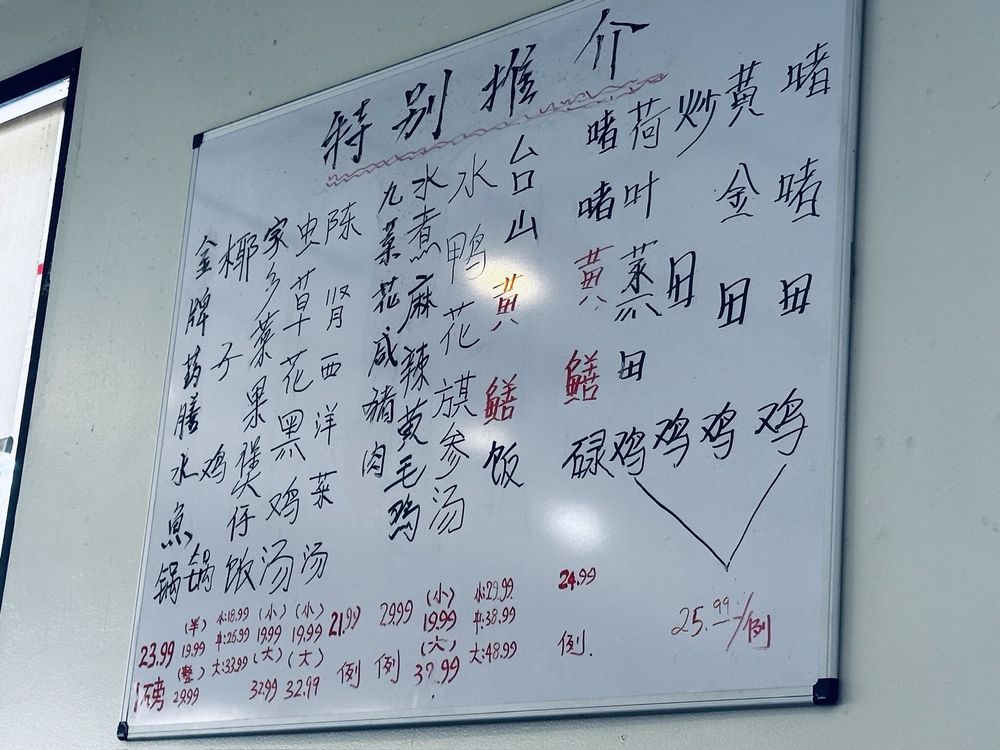 特别推介
金牌药膳水鱼锅
椰子鸡锅
家乡菜果煲仔饭
虫草花黑鸡汤
陈肾西洋菜汤
九菜花咸猪肉
水煮麻辣黄毛鸡
水鸭花旗参汤
台山黄鳝饭
啫啫黄鳝碌
荷叶蒸田鸡
炒田鸡
黄金田鸡
啫啫田鸡
23.99
磅
(半)
19.99
(整)
29.99
小:18.99
中:26.99
大:33.99
(小)
19.99
(大)
32.99
(小)
19.99
(大)
32.99
21.99
例
29.99
例
(小)
19.99
(大)
32.99
小:29.99
中:38.99
大:48.99
24.99
例.
25.99/例